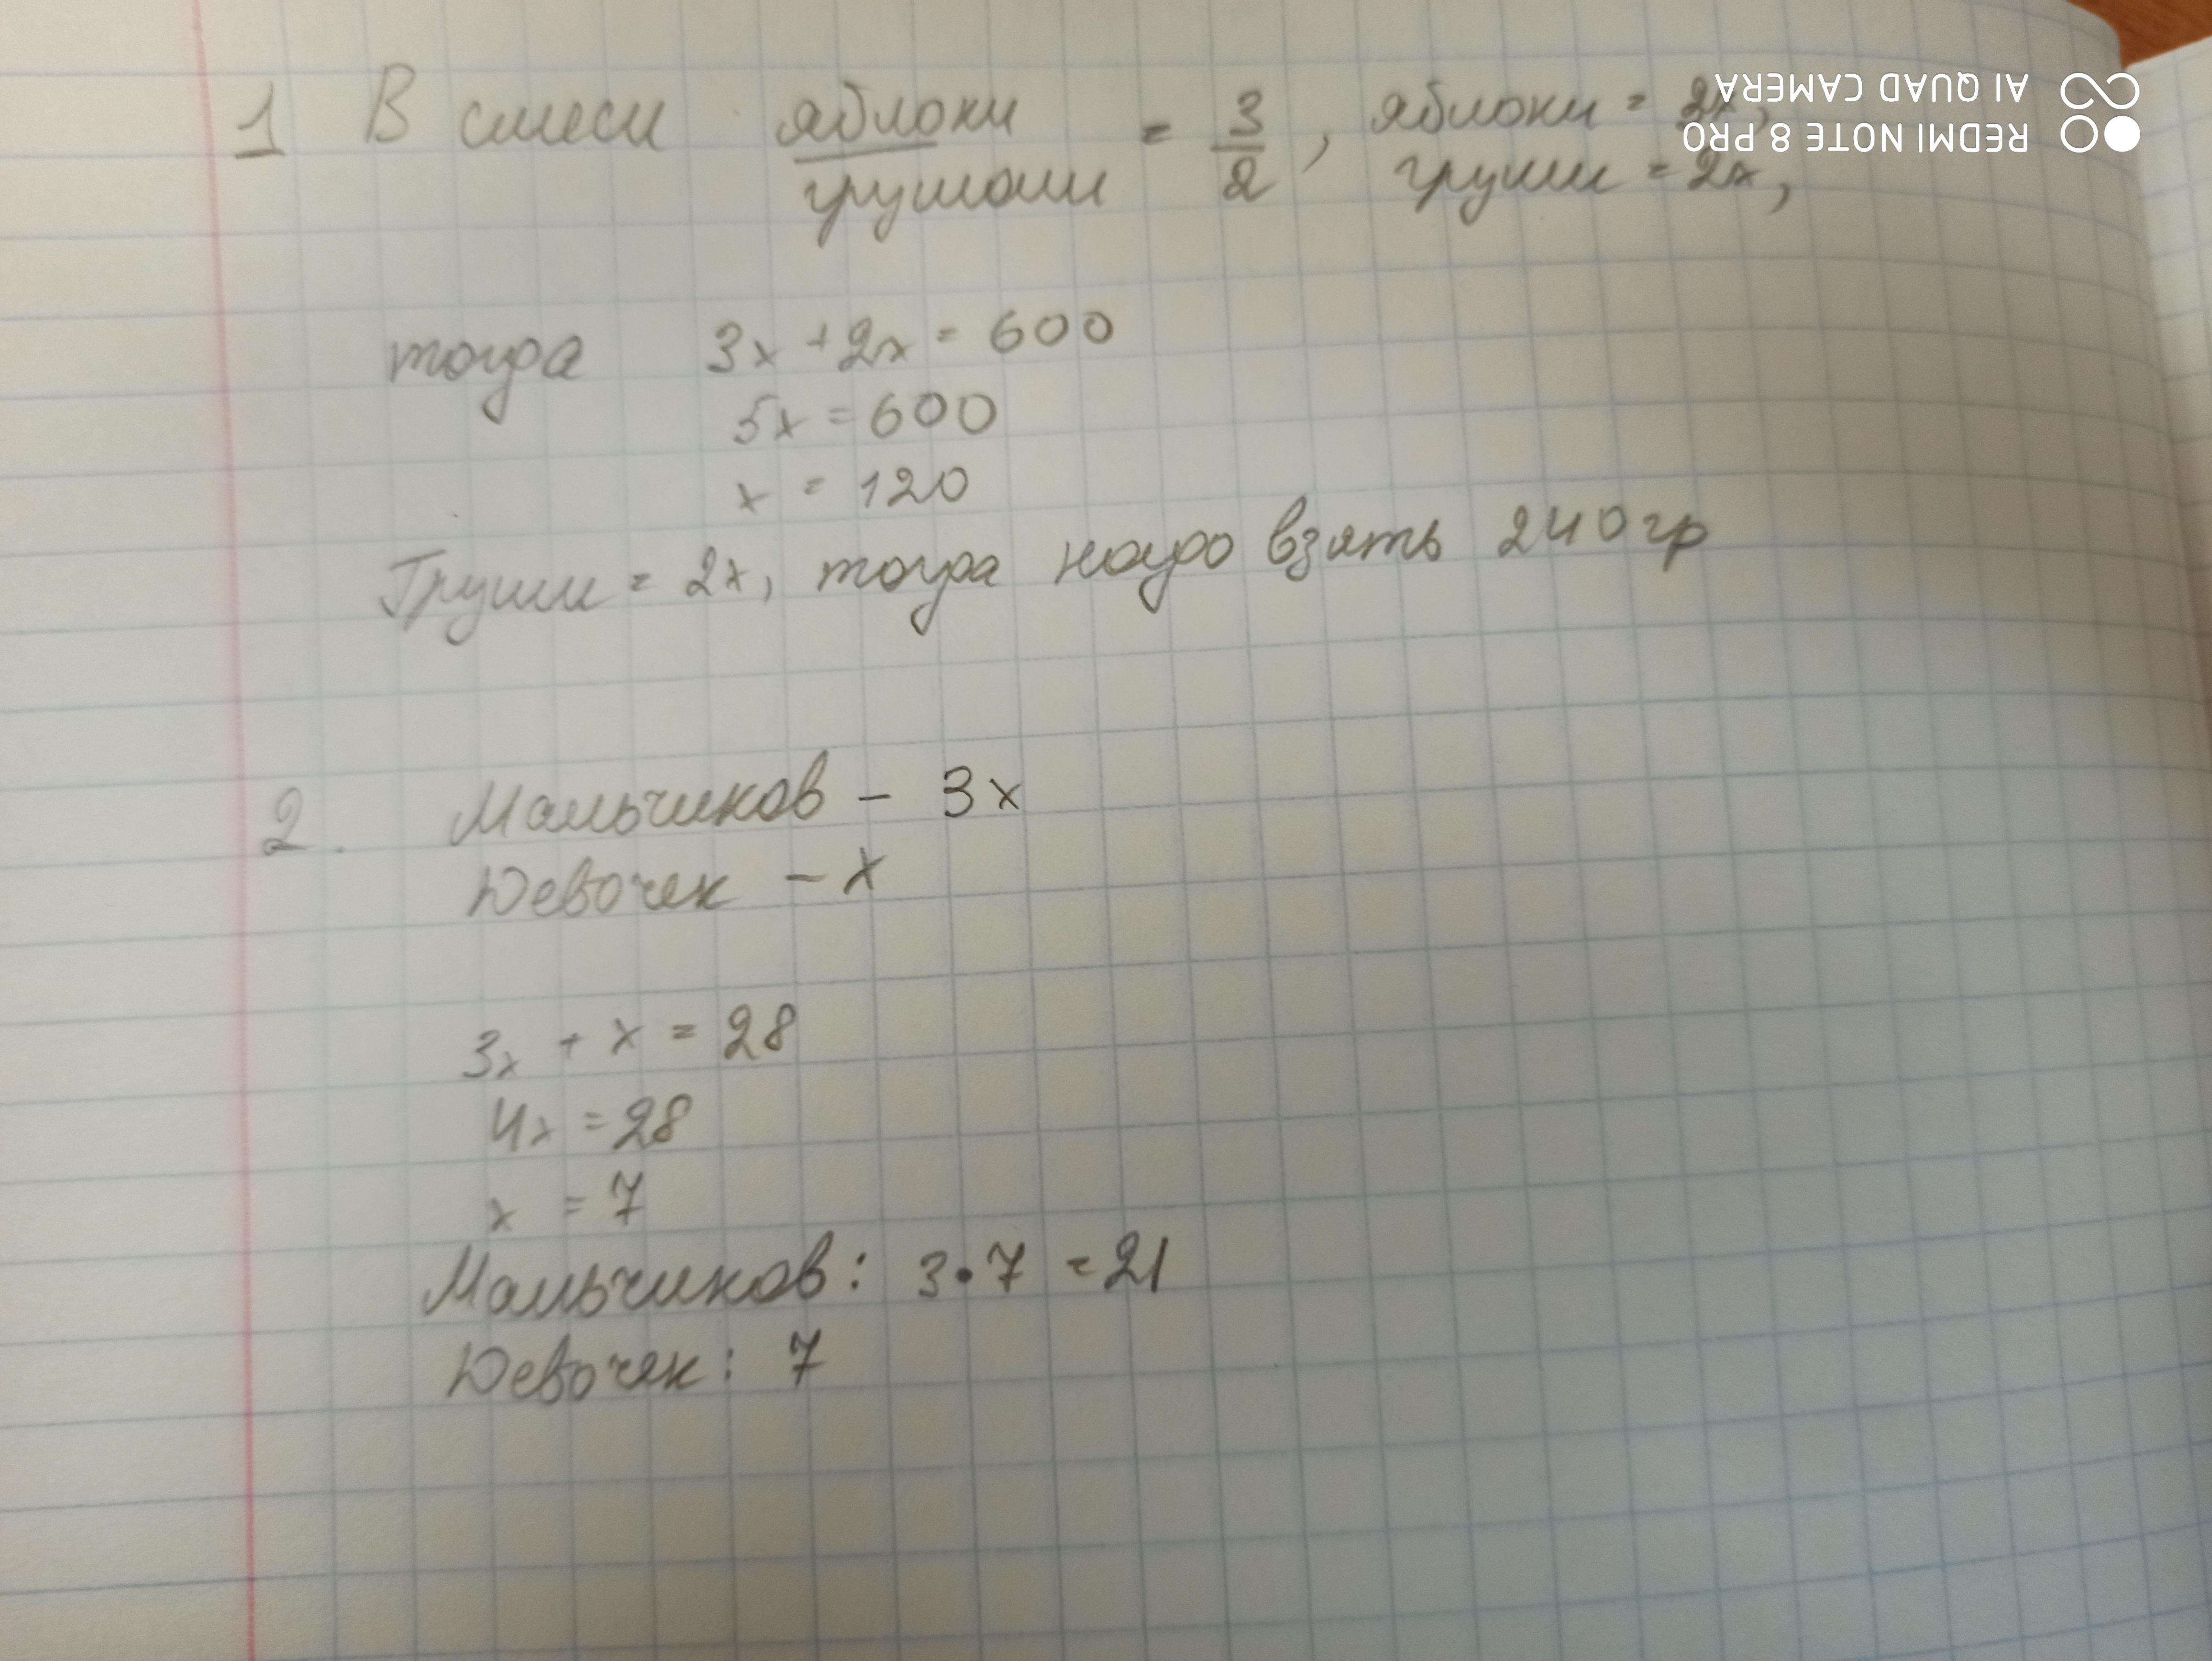 1 В смеси яблоки = 3/2, яблоки =
грушами груши = 2x,
тогда 3x + 2x = 600
5x = 600
x = 120
Груши = 2x, тогда надо взять 240 гр
2. Мальчиков - 3x
Девочек - x
3x + x = 28
4x = 28
x = 7
Мальчиков: 3•7 = 21
Девочек: 7
REDMI NOTE 8 PRO
AI QUAD CAMERA